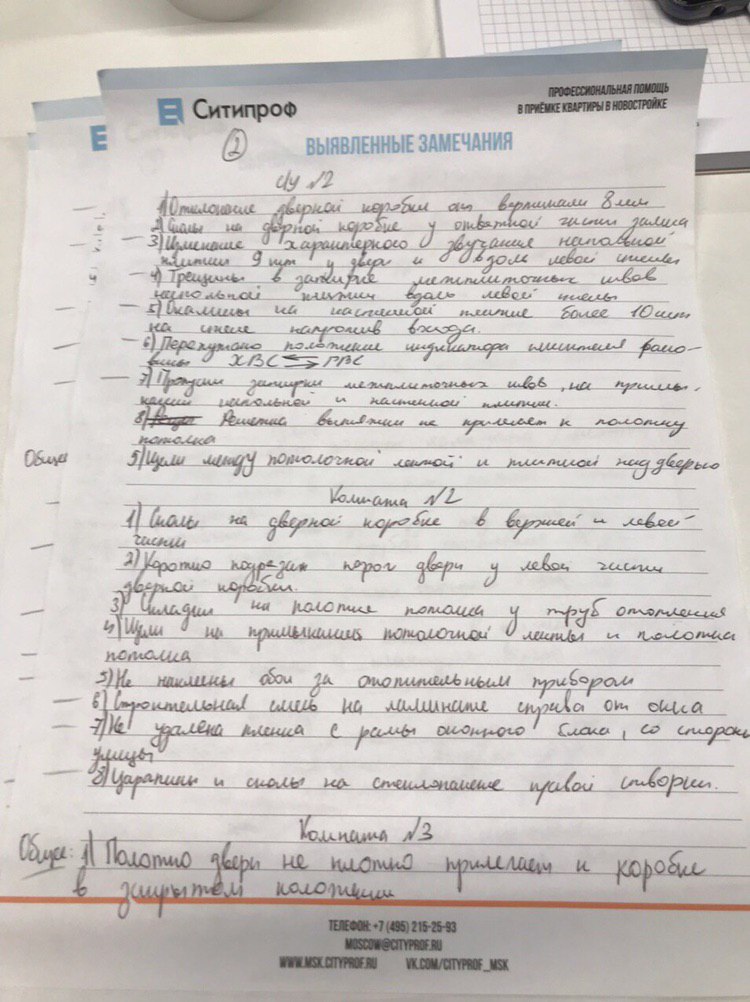 Ситипроф
ПРОФЕССИОНАЛЬНАЯ ПОМОЩЬ
В ПРИЁМКЕ КВАРТИРЫ В НОВОСТРОЙКЕ
2
ВЫЯВЛЕННЫЕ ЗАМЕЧАНИЯ
с/у №2
1) Отклонение дверной коробки от вертикали 8 мм
2) Сколы на дверной коробке у ответной части замка
3) Изменение характерного звучания напольной
плитки 9 шт у двери и вдоль левой стены
4) Трещины в затирке межплиточных швов
напольной плитки вдоль левой стены
5) Окалины на настенной плитке более 10 шт
на стене напротив входа.
6) Перепутано положение индикатора смесителя рако-
вины ХВС ⇆ ГВС
7) Пропуски затирки межплиточных швов, на примы-
кании напольной и настенной плитки.
8) Решетка вытяжки не прилегает к полотну
потолка
Общее 9) Щели между потолочной лентой и плиткой над дверью
Комната №2
1) Сколы на дверной коробке в верхней и левой
части
2) Коротко подрезан порог двери у левой части
дверной коробки.
3) Складки на полотне потолка у труб отопления
4) Щели на примыканиях потолочной ленты и полотна
потолка
5) Не наклеены обои за отопительным прибором
6) Строительная смесь на ламинате справа от окна
7) Не удалена пленка с рамы оконного блока, со стороны
улицы
8) Царапины и сколы на стеклопакете правой створки.
Комната №3
Общее: 1) Полотно двери не плотно прилегает к коробке
в закрытом положении
ТЕЛЕФОН: +7 (495) 215-25-93
MOSCOW@CITYPROF.RU
WWW.MSK.CITYPROF.RU VK.COM/CITYPROF_MSK